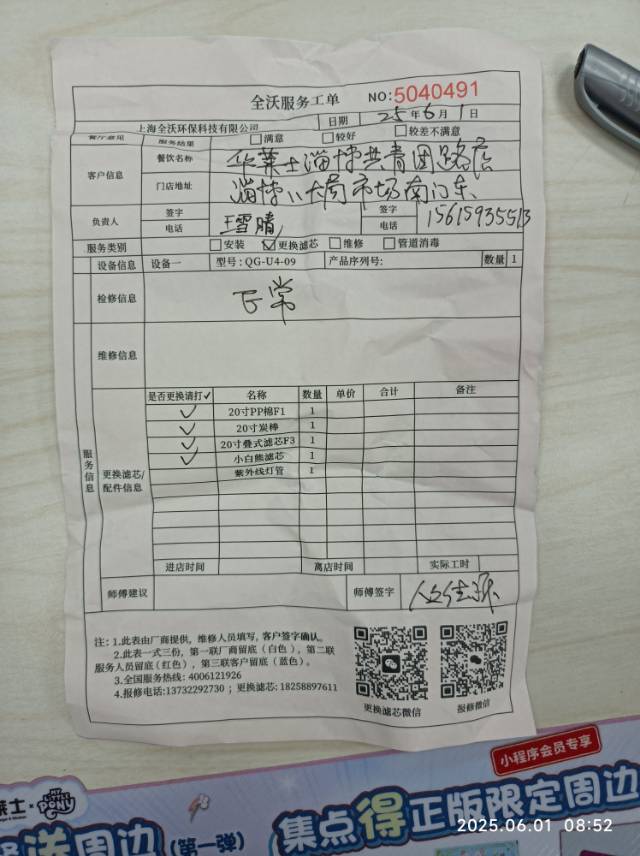 全沃服务工单 NO:5040491
上海全沃环保科技有限公司 日期 25年6月1日
服务结果 满意 较好 较差不满意
客户信息 餐饮名称 华莱士淄博共青团路店
门店地址 淄博八大局市场南门东
负责人 签字 电话 王雪晴 签字 电话 15615935513
服务类别 安装 更换滤芯 维修 管道消毒
设备信息 设备一 型号:QG-U4-09 产品序列号: 数量 1
检修信息 正常
维修信息
服务信息
更换滤芯/配件信息
是否更换请打✓ 名称 数量 单价 合计 备注
✓ 20寸PP棉F1 1
✓ 20寸炭棒 1
✓ 20寸叠式滤芯F3 1
✓ 小白熊滤芯 1
紫外线灯管 1
进店时间 离店时间 实际工时
师傅建议 师傅签字
注:1.此表由厂商提供,维修人员填写,客户签字确认。
2.此表一式三份,第一联厂商留底(白色),第二联
服务人员留底(红色),第三联客户留底(蓝色)。
3.全国服务热线:4006121926
4.报修电话:13732292730;更换滤芯:18258897611
更换滤芯微信 报修微信
小程序会员专享
莱士× MY LITTLE PONY
送周边(第一弹) 集点得正版限定周边
2025.06.01 08:52